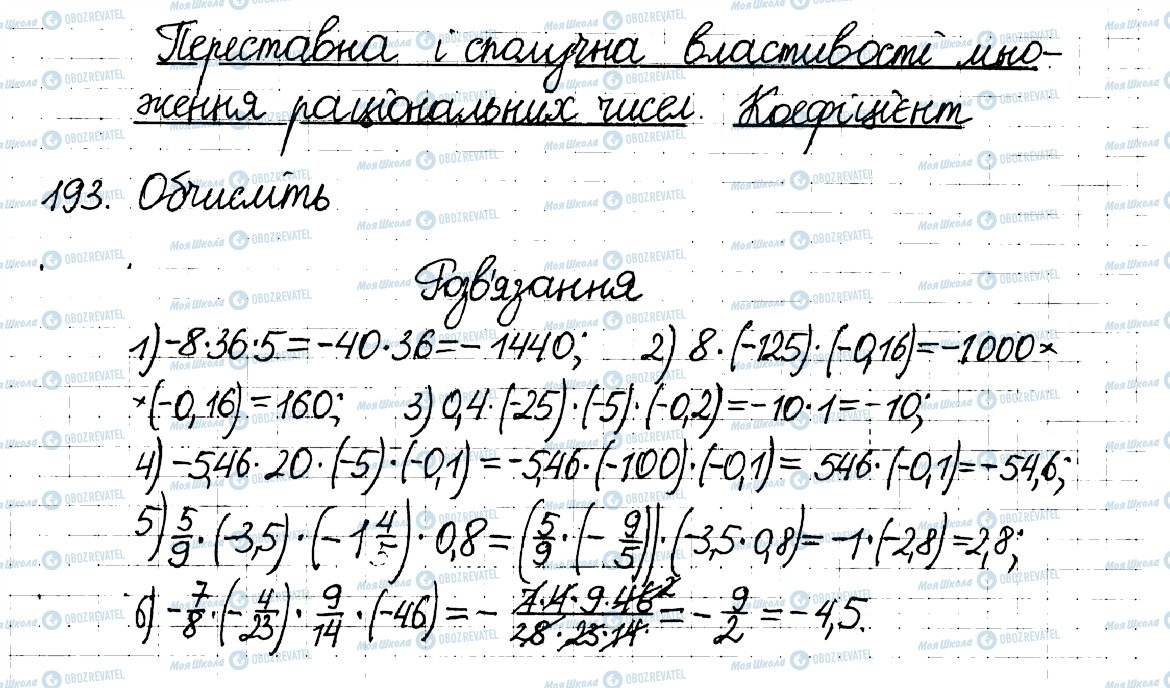 Переставна і сполучна властивості мно-
ження раціональних чисел. Коефіцієнт
193. Обчисліть
Розв'язання
1) -8·36·5=-40·36=-1440; 2) 8·(-125)·(-0,16)=-1000×
×(-0,16)=160; 3) 0,4·(-25)·(-5)·(-0,2)=-10·1=-10;
4) -5,46·20·(-5)·(-0,1)=-5,46·(-100)·(-0,1)=546·(-0,1)=-54,6;
5) 5/9·(-3,5)·(-1 4/5)·0,8=(5/9·(-9/5))·(-3,5·0,8)=-1·(-2,8)=2,8;
6) -7/8·(-4/23)·9/14·(-46)=-7·4·9·46 2/28·23·14·=-9/2=-4,5.